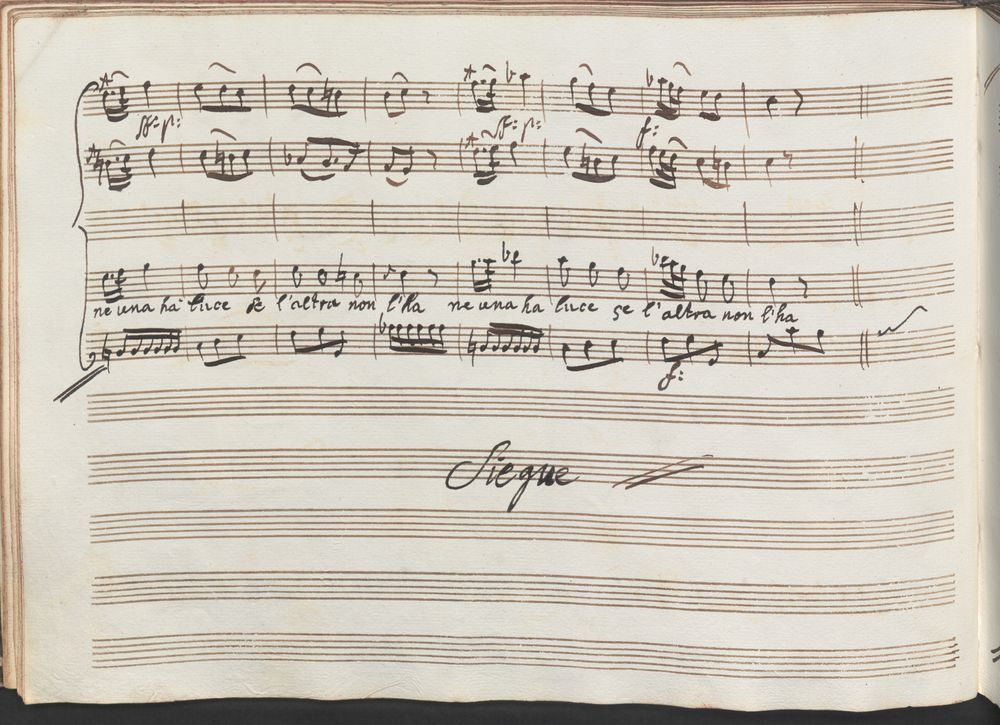 sf: p: sf: p: f:
ne una ha luce se l'altra non l'ha ne una ha luce se l'altra non l'ha
f:
Siegue